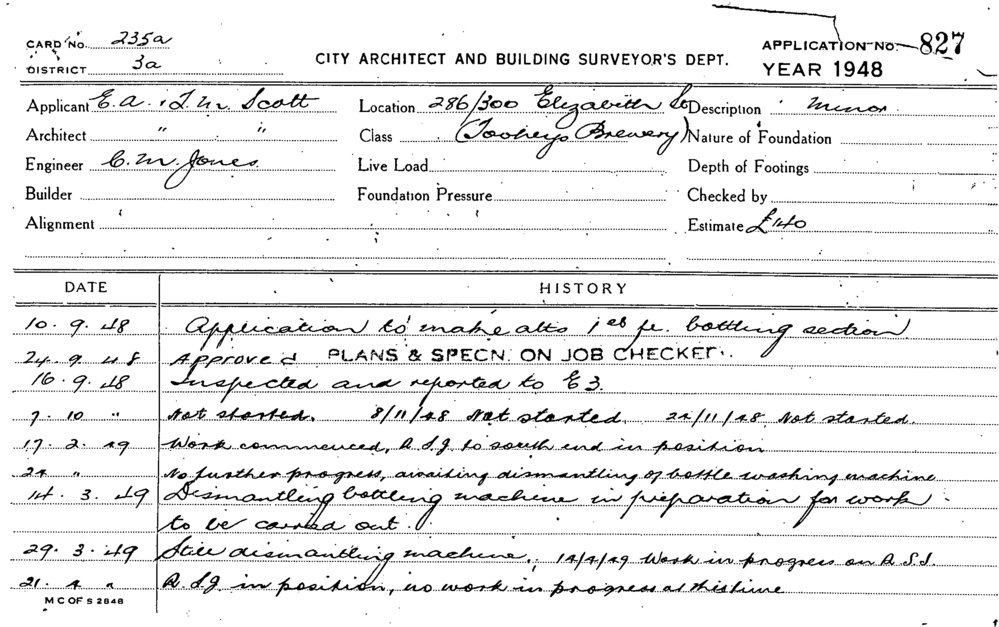 CARD No. 235a
DISTRICT 3a
CITY ARCHITECT AND BUILDING SURVEYOR'S DEPT.
APPLICATION No. 827
YEAR 1948
Applicant E. A. & T. M. Scott Location 286/300 Elizabeth St Description Minor
Architect " " Class (Tooheys Brewery) Nature of Foundation
Engineer C. M. Jones Live Load Depth of Footings
Builder Foundation Pressure Checked by
Alignment Estimate £140
DATE HISTORY
10. 9. 48 Application to make alts 1st flr. bottling section
24. 9. 48 Approved PLANS & SPECN. ON JOB CHECKED.
16. 9. 48 Inspected and reported to E3.
7. 10 " Not started. 8/11/48 Not started. 24/11/48 Not started.
17. 2. 49 Work commenced, R.S.J. to south end in position
24 " No further progress, awaiting dismantling of bottle washing machine
14. 3. 49 Dismantling bottling machine in preparation for work
to be carried out.
29. 3. 49 Still dismantling machine. 14/4/49 Work in progress on R.S.J.
21. 4 " R.S.J. in position, no work in progress at this time
M C OF S 2848